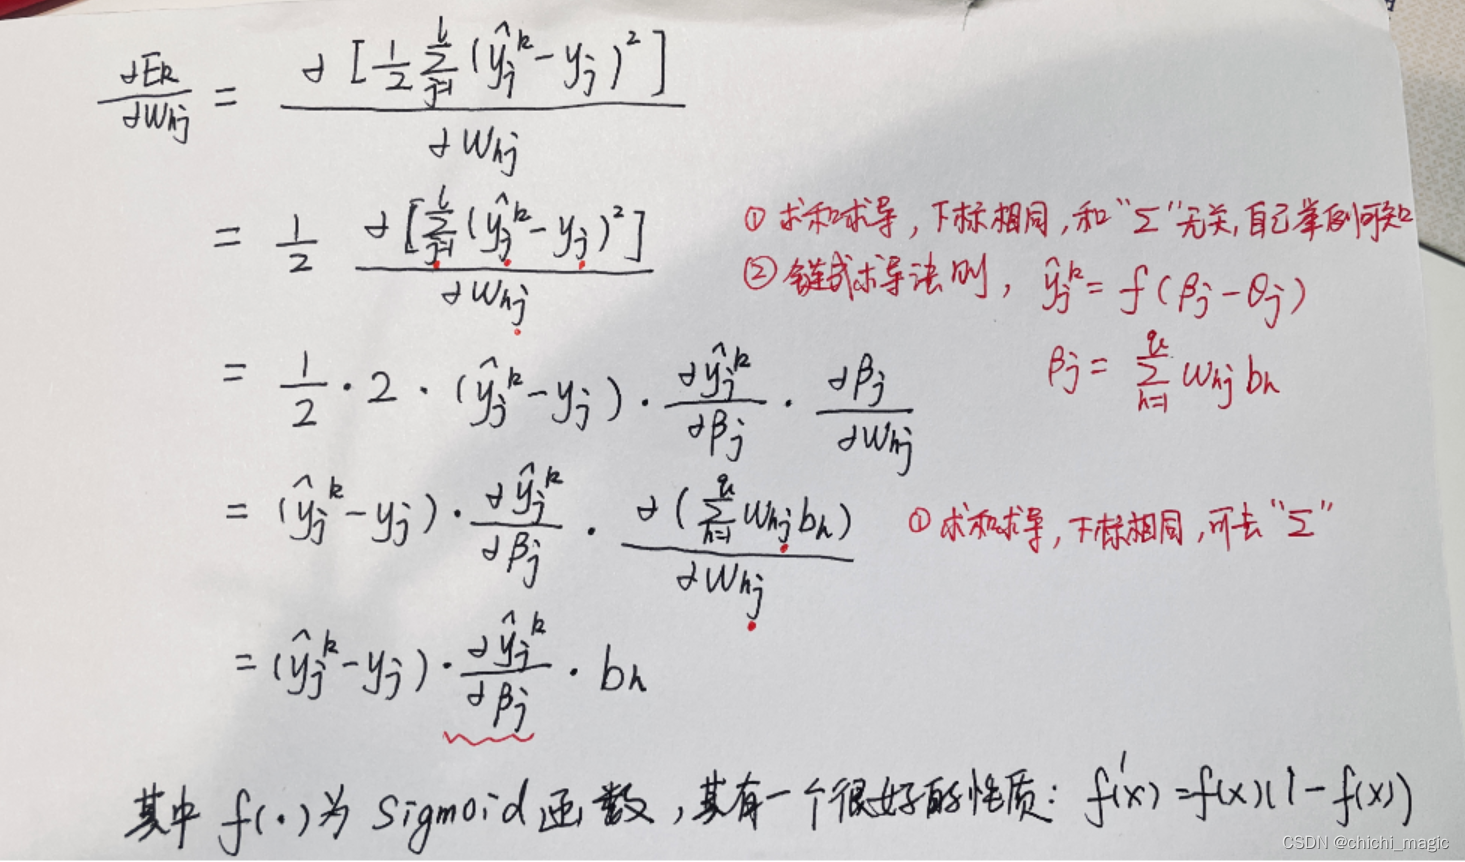 ∂E_k/∂w_hj = ∂[1/2 Σ_{j=1}^{l} (ŷ_j^k - y_j)^2] / ∂w_hj
= 1/2 ∂[Σ_{j=1}^{l} (ŷ_j^k - y_j)^2] / ∂w_hj
① 求和求导，下标相同，和“Σ”无关，自己举例可知
② 链式求导法则，ŷ_j^k = f(β_j - θ_j)
β_j = Σ_{h=1}^{q} w_hj b_h
= 1/2 · 2 · (ŷ_j^k - y_j) · ∂ŷ_j^k/∂β_j · ∂β_j/∂w_hj
= (ŷ_j^k - y_j) · ∂ŷ_j^k/∂β_j · ∂(Σ_{h=1}^{q} w_hj b_h)/∂w_hj
① 求和求导，下标相同，可去“Σ”
= (ŷ_j^k - y_j) · ∂ŷ_j^k/∂β_j · b_h
其中 f(·)为 Sigmoid 函数，其有一个很好的性质：f'(x)=f(x)(1-f(x))
CSDN @chichi_magic